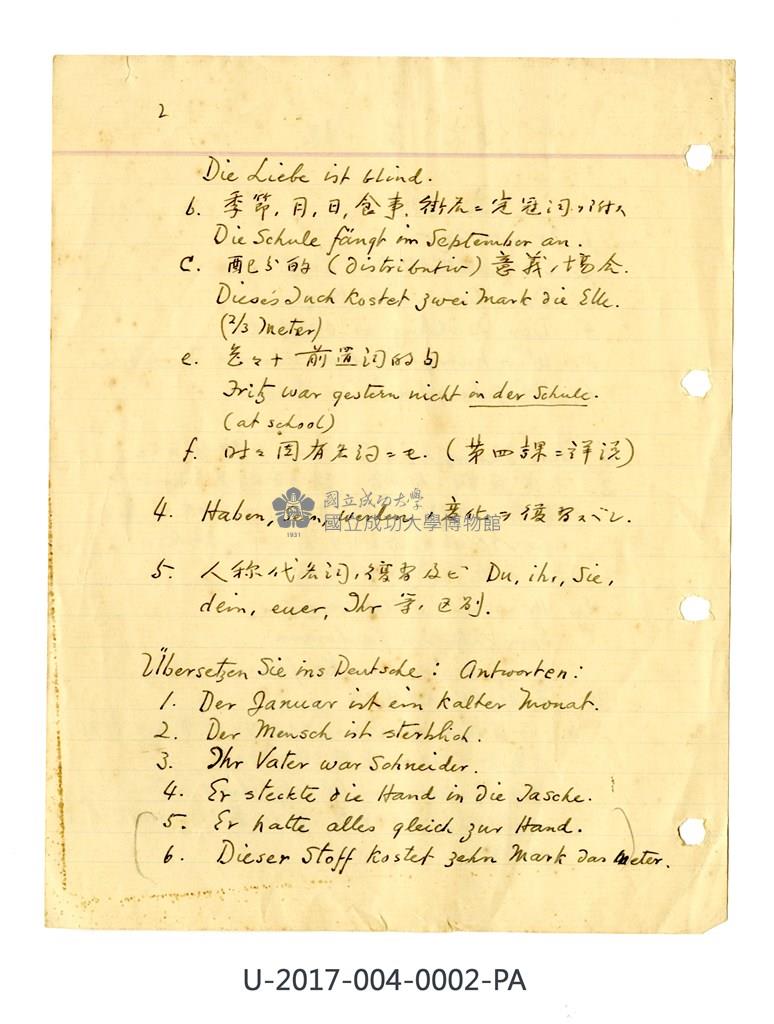 2
Die Liebe ist blind.
b. 季節,月,日,食事,街路ニ定冠詞ヲ附ス
Die Schule fängt im September an.
c. 配分的 (distributiv) 意義ノ場合.
Dieses Tuch kostet zwei Mark die Elle.
(2/3 Meter)
e. 前置詞的句
Fritz war gestern nicht in der Schule.
(at school)
f. 时々固有名詞ニモ. (第四課ニ詳说)
4. Haben, sein, werden ノ変化ヲ復習スベシ.
5. 人称代名词ノ復習及ビ Du, ihr, Sie,
dein, euer, Ihr 等ノ区别.
Übersetzen Sie ins Deutsche: Antworten:
1. Der Januar ist ein kalter Monat.
2. Der Mensch ist sterblich.
3. Ihr Vater war Schneider.
4. Er steckte die Hand in die Tasche.
5. Er hatte alles gleich zur Hand.
6. Dieser Stoff kostet zehn Mark das Meter.
國立成功大學
國立成功大學博物館
1931
U-2017-004-0002-PA